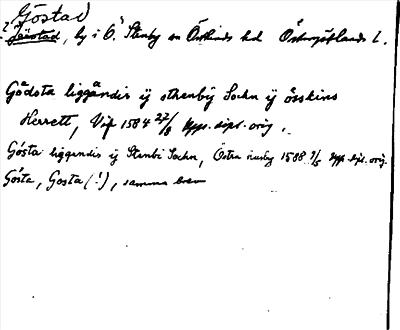 Göstad
Göistad, by i Ö. Stenby sn Östkinds hd Östergötlands l.
Gådsta liggåndis ij sthenbij Sochn ij össkins
Herrett, Vif 1584 27/8 Upps. dipl. orig.
Gösta liggandis ij Stenbi Sochn, Östra Husby 1588 7/5 Upp. dipl. orig.
Gösta, Gosta (!), samma brev